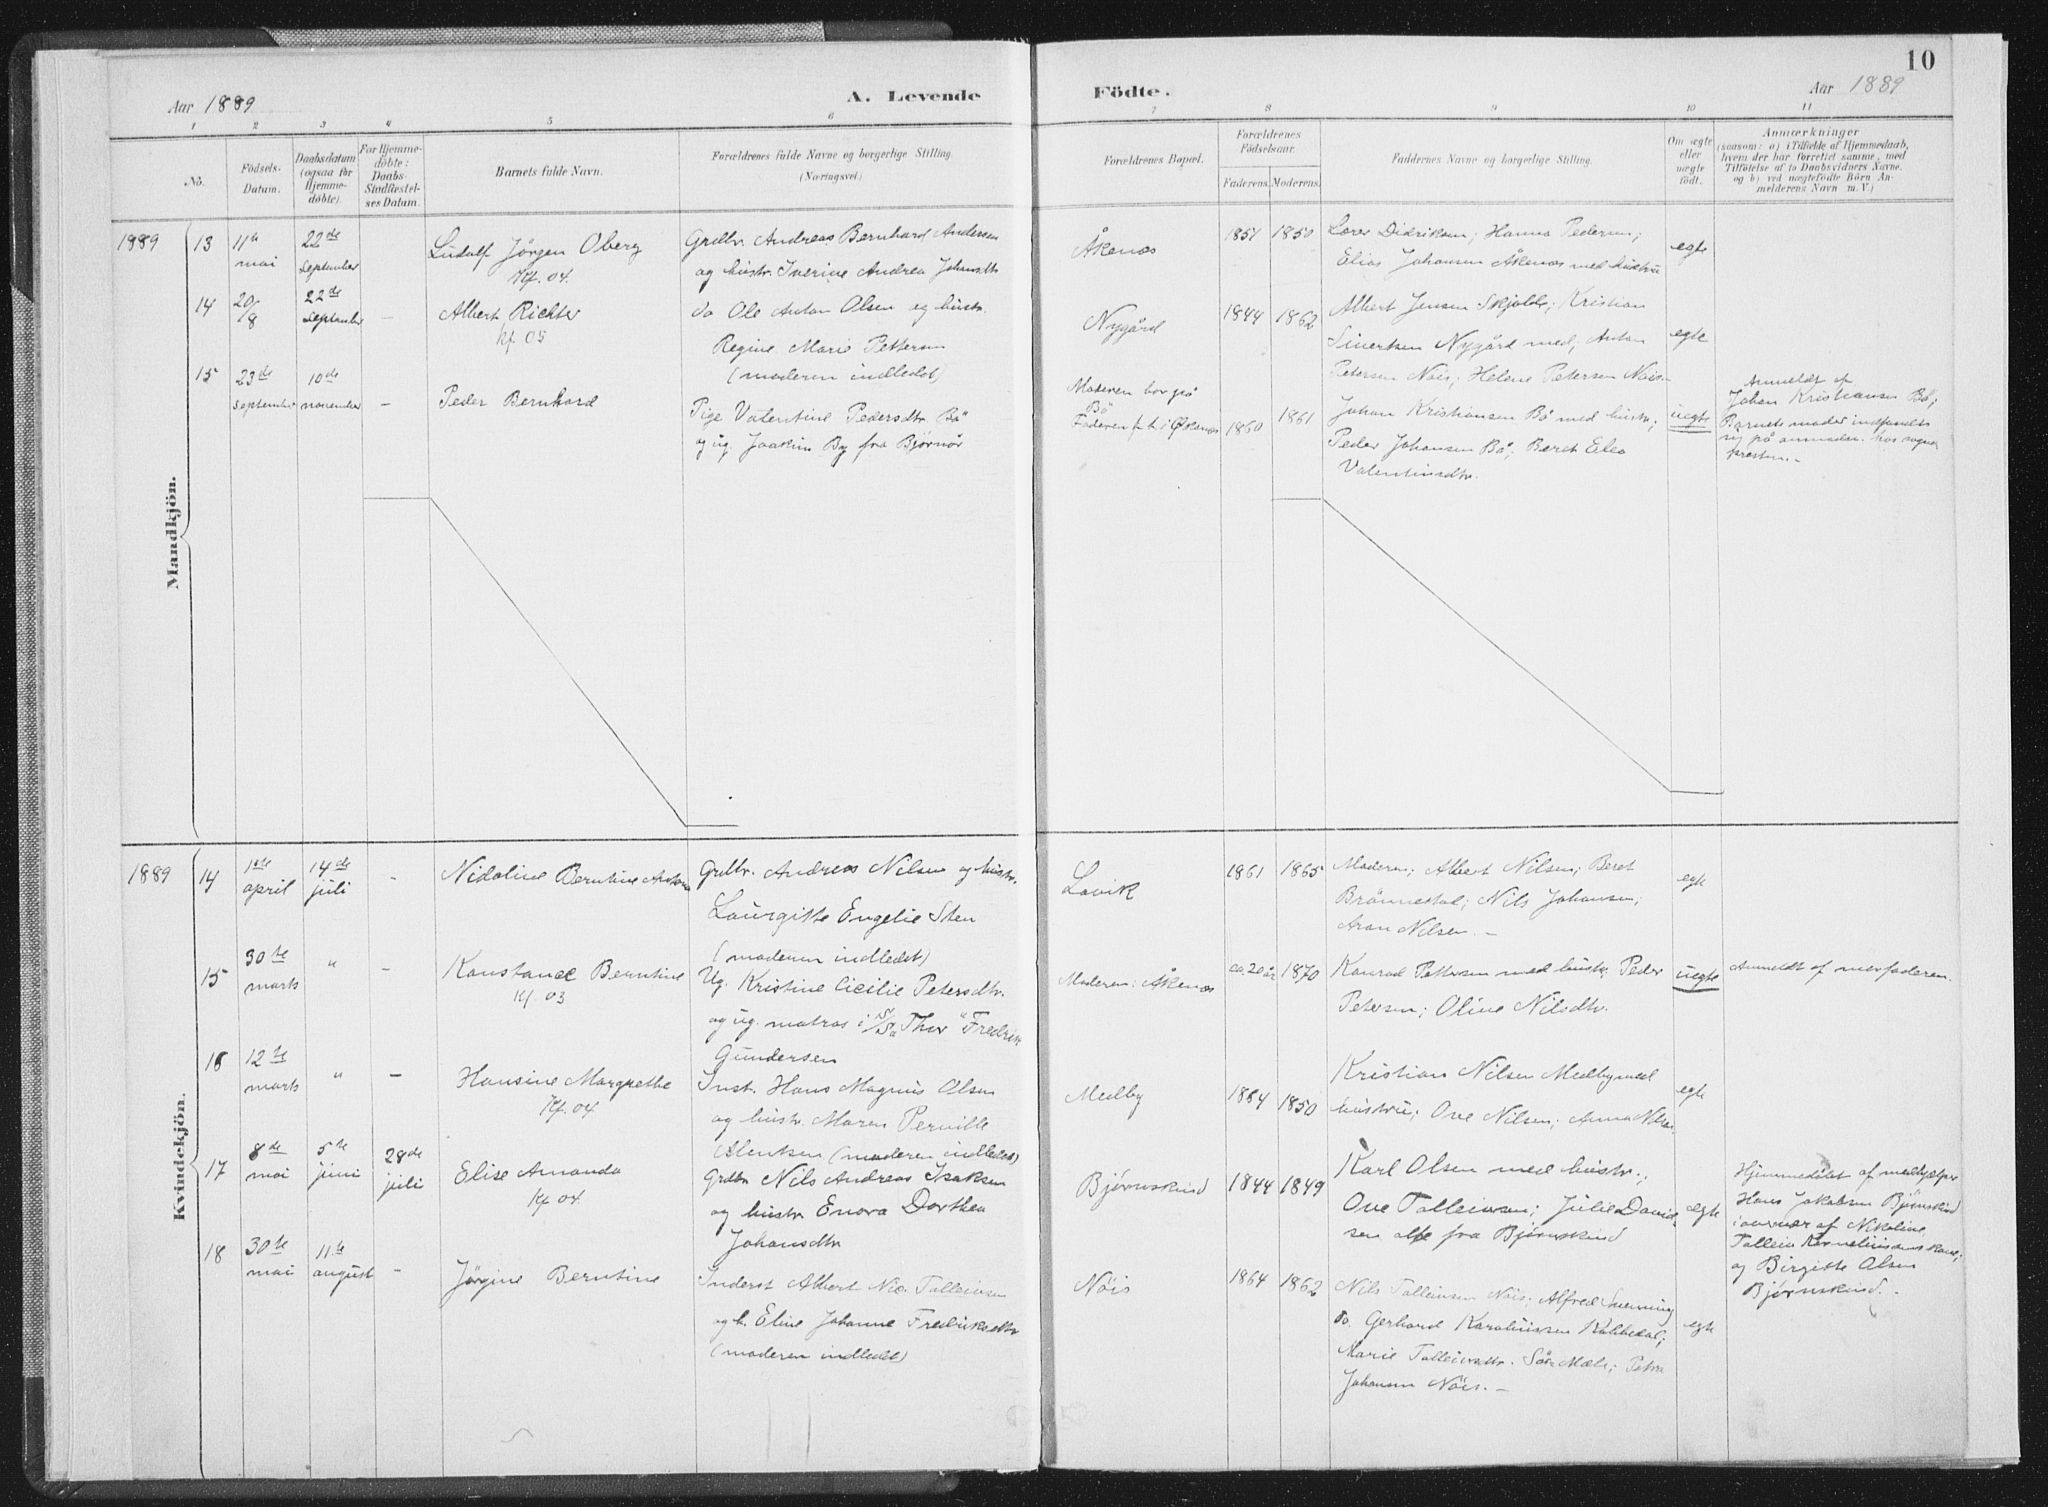 10
Aar 1889
A. Levende
Födte.
Aar 1889
1 2 3 4 5 6 7 8 9 10 11
No.
Födsels-
Datum.
Daabsdatum
(ogsaa for
Hjemme-
døbte).
For Hjemme-
døbte:
Daabs-
Stadfæstel-
ses Datum.
Barnets fulde Navn.
Forældrenes fulde Navne og borgerlige Stilling.
(Næringsvei.)
Forældrenes Bopæl.
Forældrenes
Födselsaar.
Faderens. Moderens.
Faddernes Navne og borgerlige Stilling.
Om ægte
eller
uægte
födt.
Anmærkninger
(saasom: a) i Tilfælde af Hjemmedaab,
hvem der har forrettet samme, med
Tilföielse af to Daabsvidners Navne.
og b) ved uægtefödte Börn An-
melderens Navn m. V.)
Mandkjön.
1889 13 11te mai 22de september
Ludolf Jörgen Oberg
Kf. 04.
Grdbr. Andreas Bernhard Andersen
og hustr. Iverine Andrea Johansdtr
Åkenæs
1851 1850
Didriksen; Hanna Pedersen;
Elias Johansen Åkenæs med hustru
egte
14 20/8 22de september -
Albert Richter
kf. 05
do Ole Anton Olsen og hustr.
Regine Marie Pettersen
(moderen indledet)
Nygård
1844 1862
Albert Jensen Skjolde; Kristian
Sivertsen Nygård med, Anton
Petersen Nöis; Helene Petersen Nöis.
egte
15 23de september 10de november -
Peder Bernhard
Pige Valentine Pedersdtr. Bö
og ug. Joakim By fra Bjørnör
Moderen bor på
Bö
Faderen f. t. i Økenæs
1860 1861
Johan Kristiansen Bö med hustr.;
Peder Johansen Bö; Beret Elea
Valentinsdtr.
uegte
Anmeldt af
Johan Kristiansen Bö;
Barnets moder indfandt
sig på anmoden hos sogne
presten.-
Kvindekjön.
1889 14 1ste april 14de juli -
Nidoline Berntine Antona
Grdbr. Andreas Nilsen og hustr.
Laurgitte Engelie Sten
(moderen indledet)
Lavik
1861 1865
Moderen; Albert Nilsen; Beret
Brönnestad; Nils Johansen;
Aron Nilsen. -
egte
15 30te marts " -
Konstance Berntine
Kf. 03
Ug. Kristine Cicilie Petersdtr.
og ug. matros i S/S "Thor" Fredrik
Gundersen
Moderen: Åkenæs
ca. 20 år 1870
Konrad Pettersen med hustr; Peder
Petersen; Oline Nilsdtr.
uegte
Anmeldt af morfaderen.
16 12te marts " -
Hansine Margrethe
Kf. 04
Inst. Hans Magnus Olsen
og hustr. Maren Pernille
(moderen indledet)
Medby
1864 1850
Kristian Nilsen Medby med
hustru; Ove Nilsen; Anna Nilsen
egte
17 8de mai 5te juni 28de juli
Elise Amanda
Kf 04
Grdbr Nils Andreas Isaksen
og hustr Enora Dorthea
Johansdtr
Bjørnskind
1844 1849
Karl Olsen med hustr.;
Ove Tolleivsen; Julie David
sen alle fra Bjørnskind
egte
Hjemmedöbt af medhjælper
Hans Jakobsen Bjørnskind
i nærvær af Nikoline
Tollein Korneliussens kone;
og Birgitte Olsen
Bjørnskind. -
18 30te mai 11te august -
Jörgine Berntine
Inderst Albert Nic. Tolleivsen
og h. Eline Johanne Fredriksdtr
(moderen indledet)
Nöis
1864 1862
Nils Tolleivsen Nöis; Alfred
do. Gerhard Karoliussen Kobbedal;
Marie Tolleivsdtr. Petra
Johansen Nöis. -
egte